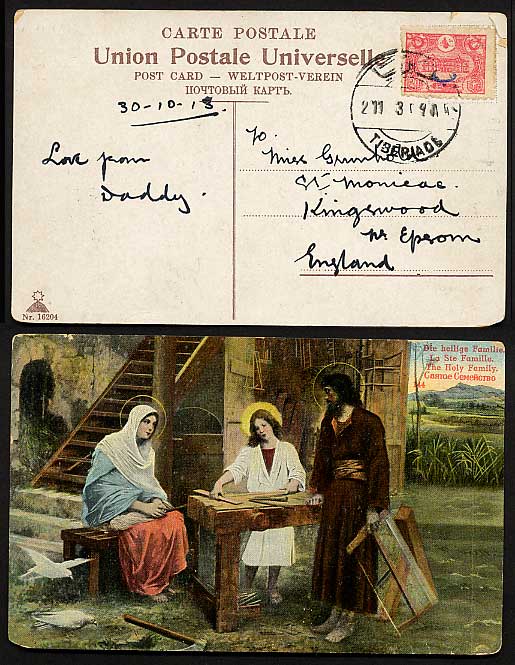 CARTE POSTALE
Union Postale Universelle
POST CARD — WELTPOST-VEREIN
ПОЧТОВЫЙ КАРТЪ.
30-10-13
Love from
Daddy.
To.
Miss
St Monicas.
Kingswood
nr Epsom
England
TIBERIADE
Nr. 16204
Die heilige Familie.
La Ste Famille.
The Holy Family.
Святое Семейство
144